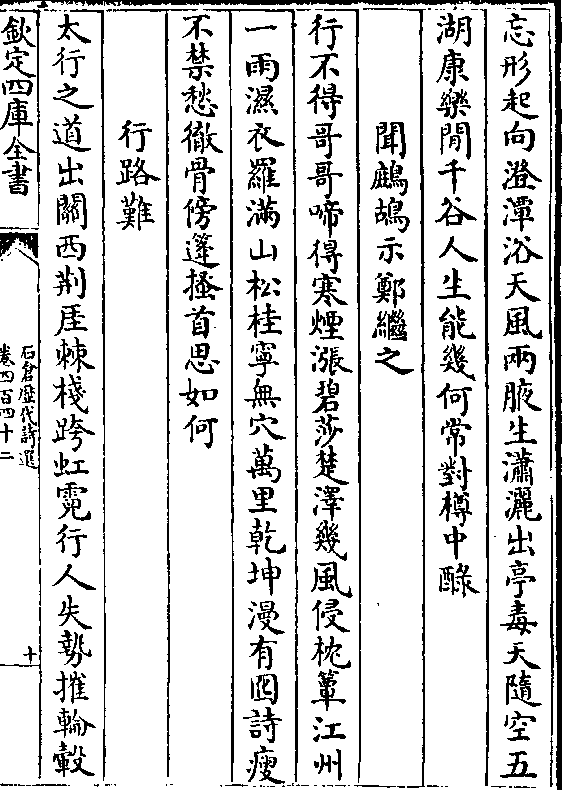 忘形起向澄潭浴天風兩腋生瀟灑出亭毒天隨空五
湖康樂閒千谷人生能幾何常對樽中醁
聞鷓鴣示鄭繼之
行不得哥哥啼得寒煙漲碧莎楚澤幾風侵枕簟江州
一雨濕衣羅滿山松桂寧無穴萬里乾坤漫有囮詩瘦
不禁愁徹骨傍篷搔首思如何
行路難
太行之道出關西荆厓棘棧跨虹霓行人失勢摧輪轂
欽定四庫全書
石倉歷代詩選
卷四百四十二
十